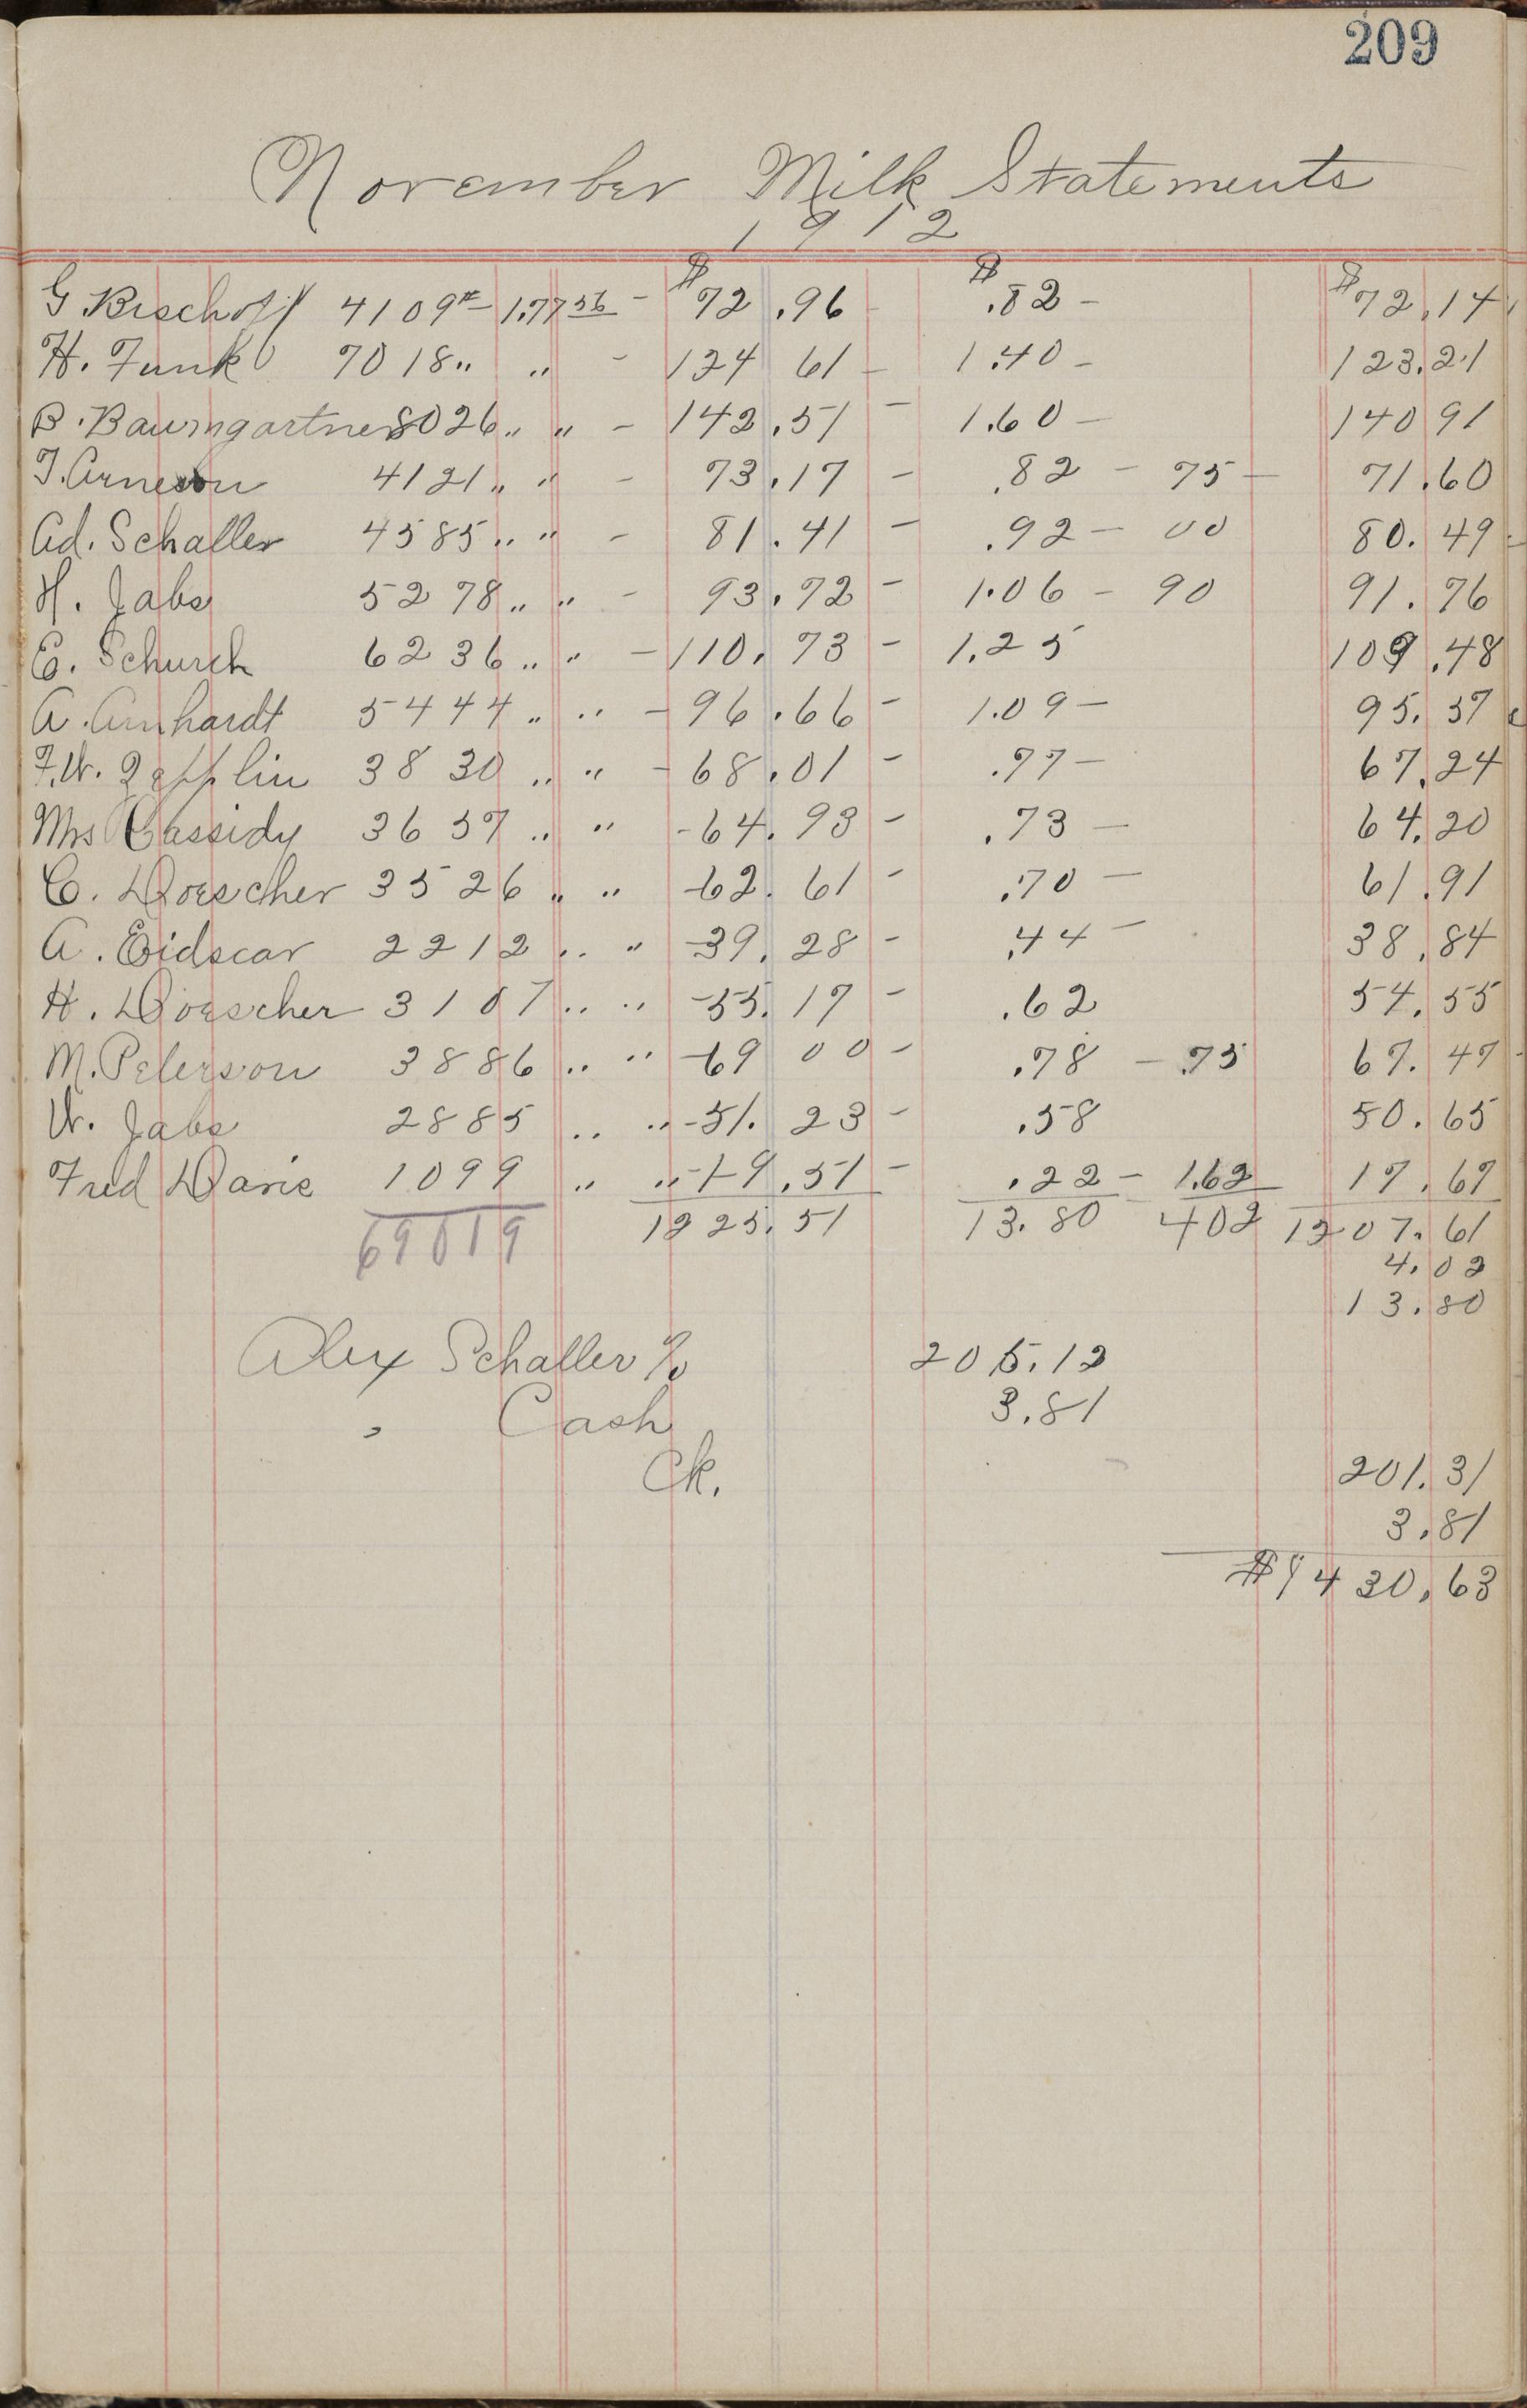 209
November Milk Statements
1912
G Bischoff 4109# 1.77 56 - $72.96 - $.82 - $72.14
H. Funk 7018 " " - 124 61 - 1.40 - 123.21
B. Baumgartner 8026 " " - 142.51 - 1.60 - 140 91
T. Arneson 4121 " " - 73.17 - .82 - 75 - 71.60
Ad. Schaller 4585 " " - 81.41 - .92 - 00 80.49
H. Jabs 5278 " " - 93.72 - 1.06 - 90 91.76
E. Schurch 6236 " " - 110.73 - 1.25 109.48
A. Arnhardt 5444 " " - 96.66 - 1.09 - 95.57
F.W. Zepplin 3830 " " - 68.01 - .77 - 67.24
Mrs Cassidy 3657 " " - 64.93 - .73 - 64.20
C. Doescher 3526 " " - 62.61 - .70 - 61.91
A. Eidscar 2212 " " - 39.28 - .44 - 38.84
H. Doescher 3107 " " - 55.17 - .62 54.55
M. Peterson 3886 " " - 69 00 - .78 - .75 67.47
W. Jabs 2885 " " - 51.23 - .58 50.65
Fred Davis 1099 " " - 19.51 - .22 - 1.62 17.67
69019 1225.51 13.80 402 1207.61
4.02
13.80
Alex Schaller % 205.12
" Cash 3.81
Ck. 201.31
3.81
$1430.63